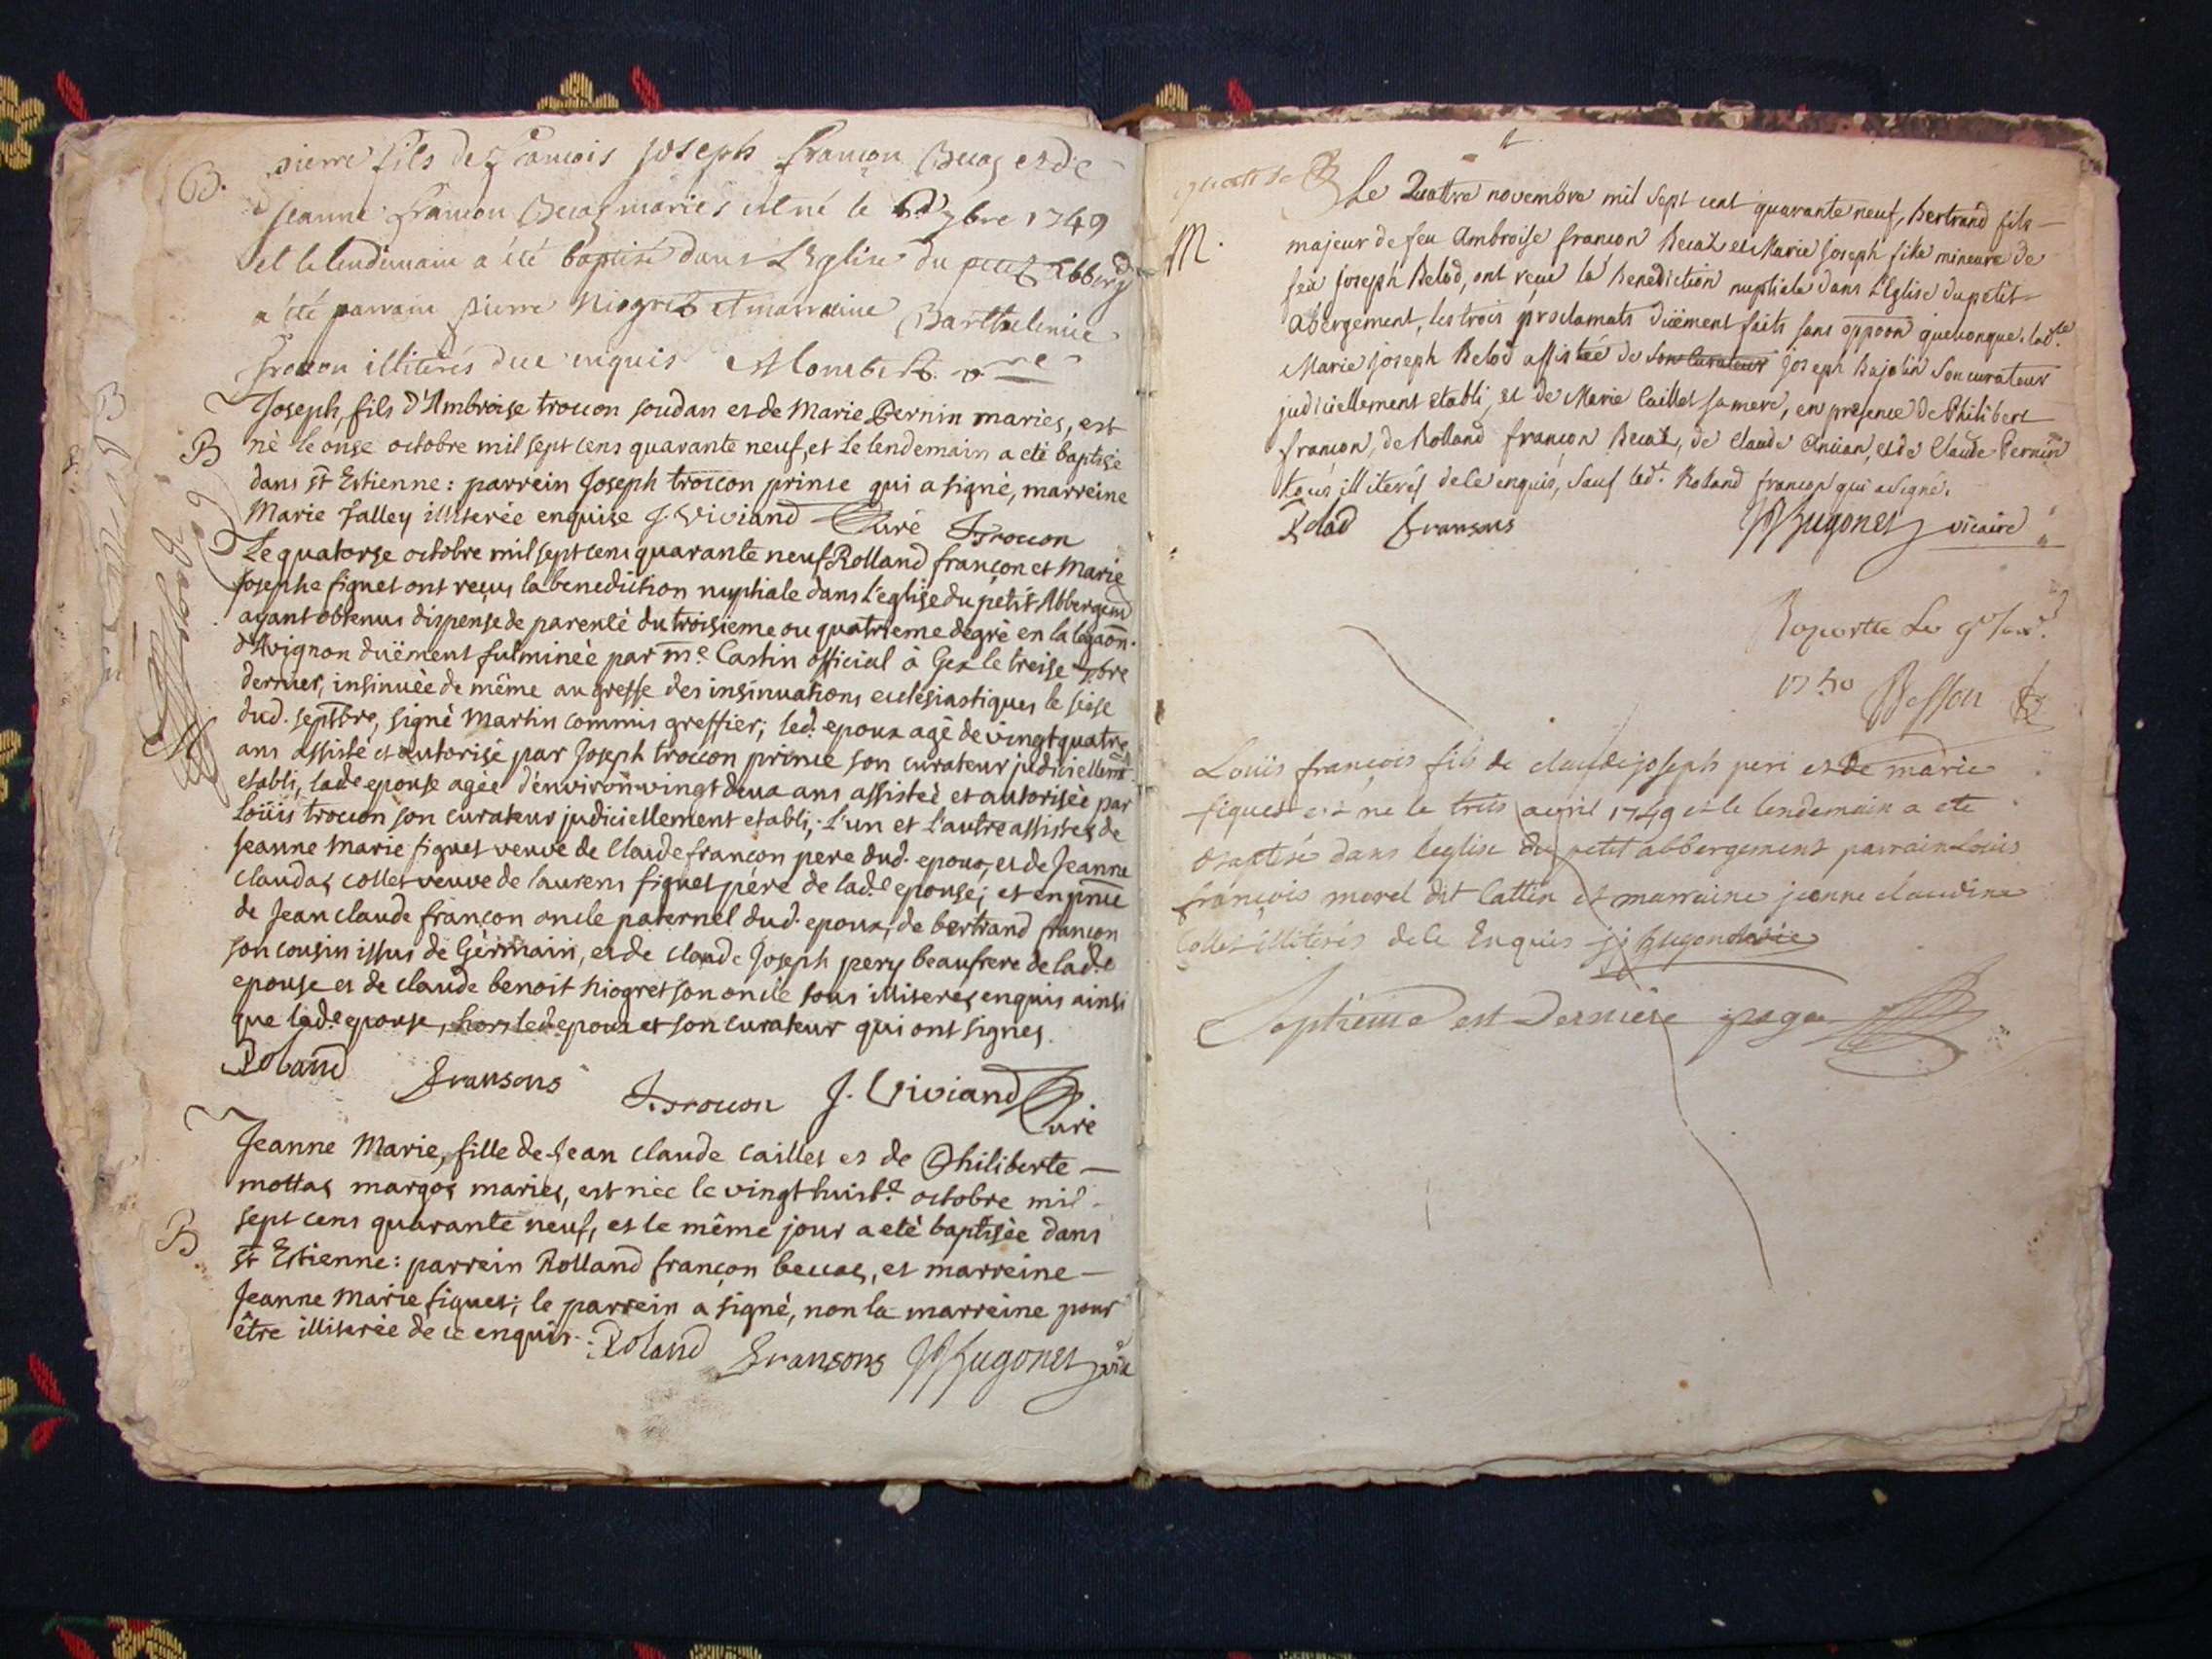 B.
pierre fils de francois joseph françon Becas et de
jeanne françon Becas mariés est né le 7bre 1749
et le lendemain a été baptisé dans L'Eglise du petit Abberg.
a été parrain pierre Niogret et marraine Barthelemie
illiterés de ce enquis
B
Joseph, fils d'Ambroise troccon soudan et de Marie Pernin mariés, est
né le onse octobre mil sept cens quarante neuf, et le lendemain a eté baptisé
dans st Estienne: parrein Joseph troccon prince qui a signé, marreine
Marie Jalley illiterée enquise J. Viviand Curé J. troccon
Le quatorse octobre mil sept cens quarante neuf Rolland françon et Marie
Josephe figuet ont reçus la benediction nuptiale dans l'eglise du petit Abbergemt
ayant obtenus dispense de parenté du troisieme ou quatrieme degré en la legaõn
d'Avignon duëment fulminée par me. Castin official à Gex le treise 7bre
dernier, insinuée de même au greffe des insinuations eclésiastiques le seise
dud. septbre, signé Martin commis greffier; led. epoux agé de vingt quatre
ans assisté et autorisé par Joseph troccon prince son curateur judiciellemt
etabli, lade epouse agée d'environ vingt deux ans assisteé et autorisée par
Loüis troccon son curateur judiciellement etabli; L'un et L'autre assistés de
Jeanne Marie figuet veuve de Claude françon pere dud. epoux, et de Jeanne
claudas collet veuve de laurens figuet père de lade. epouse; et en pnce
de Jean claude françon oncle paternel dud. epoux, de bertrand françon
son cousin issus de Germain, et de claude Joseph pery beaufrere de lad.e
epouse et de claude benoit niogret son oncle tous illiterés enquis ainsi
que lad.e epouse, hors led epoux et son curateur qui ont signés.
Roland fransons J. troccon J. Viviand Curé
Jeanne Marie, fille de Jean claude caillet et de Philiberte
mottas margos mariés, est née le vingt huit.e octobre mil
sept cens quarante neuf, et le même jour a eté baptisée dans
B.
st Estienne: parrein Rolland françon beccas, et marreine
Jeanne Marie figuet; le parrein a signé, non la marreine pour
être illiterée de ce enquis. Roland fransons Hugonet vic
Le Quattre novembre mil sept cent quarante neuf, bertrand fils
M.
majeur de feu Ambroise françon Becaz et Marie Joseph fille mineure de
feu Joseph Belod, ont reçu la benediction nuptiale dans L'Eglise du petit
Abergement, les trois proclamats duëment faits sans oppoõn quelconque. lad.te
Marie Joseph Belod assistée de son curateur Joseph son curateur
judiciellement etabli, et de Marie Caillet sa mere, en presence de Philibert
françon, de Rolland françon Becaz, de Claude et de Claude Pernin
tous illiterés de ce enquis, sauf led.t Roland françon qui a signé.
fransons Hugonet vicaire
1750 Besson
Loüis françois fils de claude joseph peri et de marie
figuet est ne le trois avril 1749 et le lendemain a ete
baptisé dans leglise du petit abbergement parrain Louis
françois morel dit Cattin et marraine jeanne claudine
Collet illiterés de ce Enquis Hugonet vic
Septieme est Derniere page